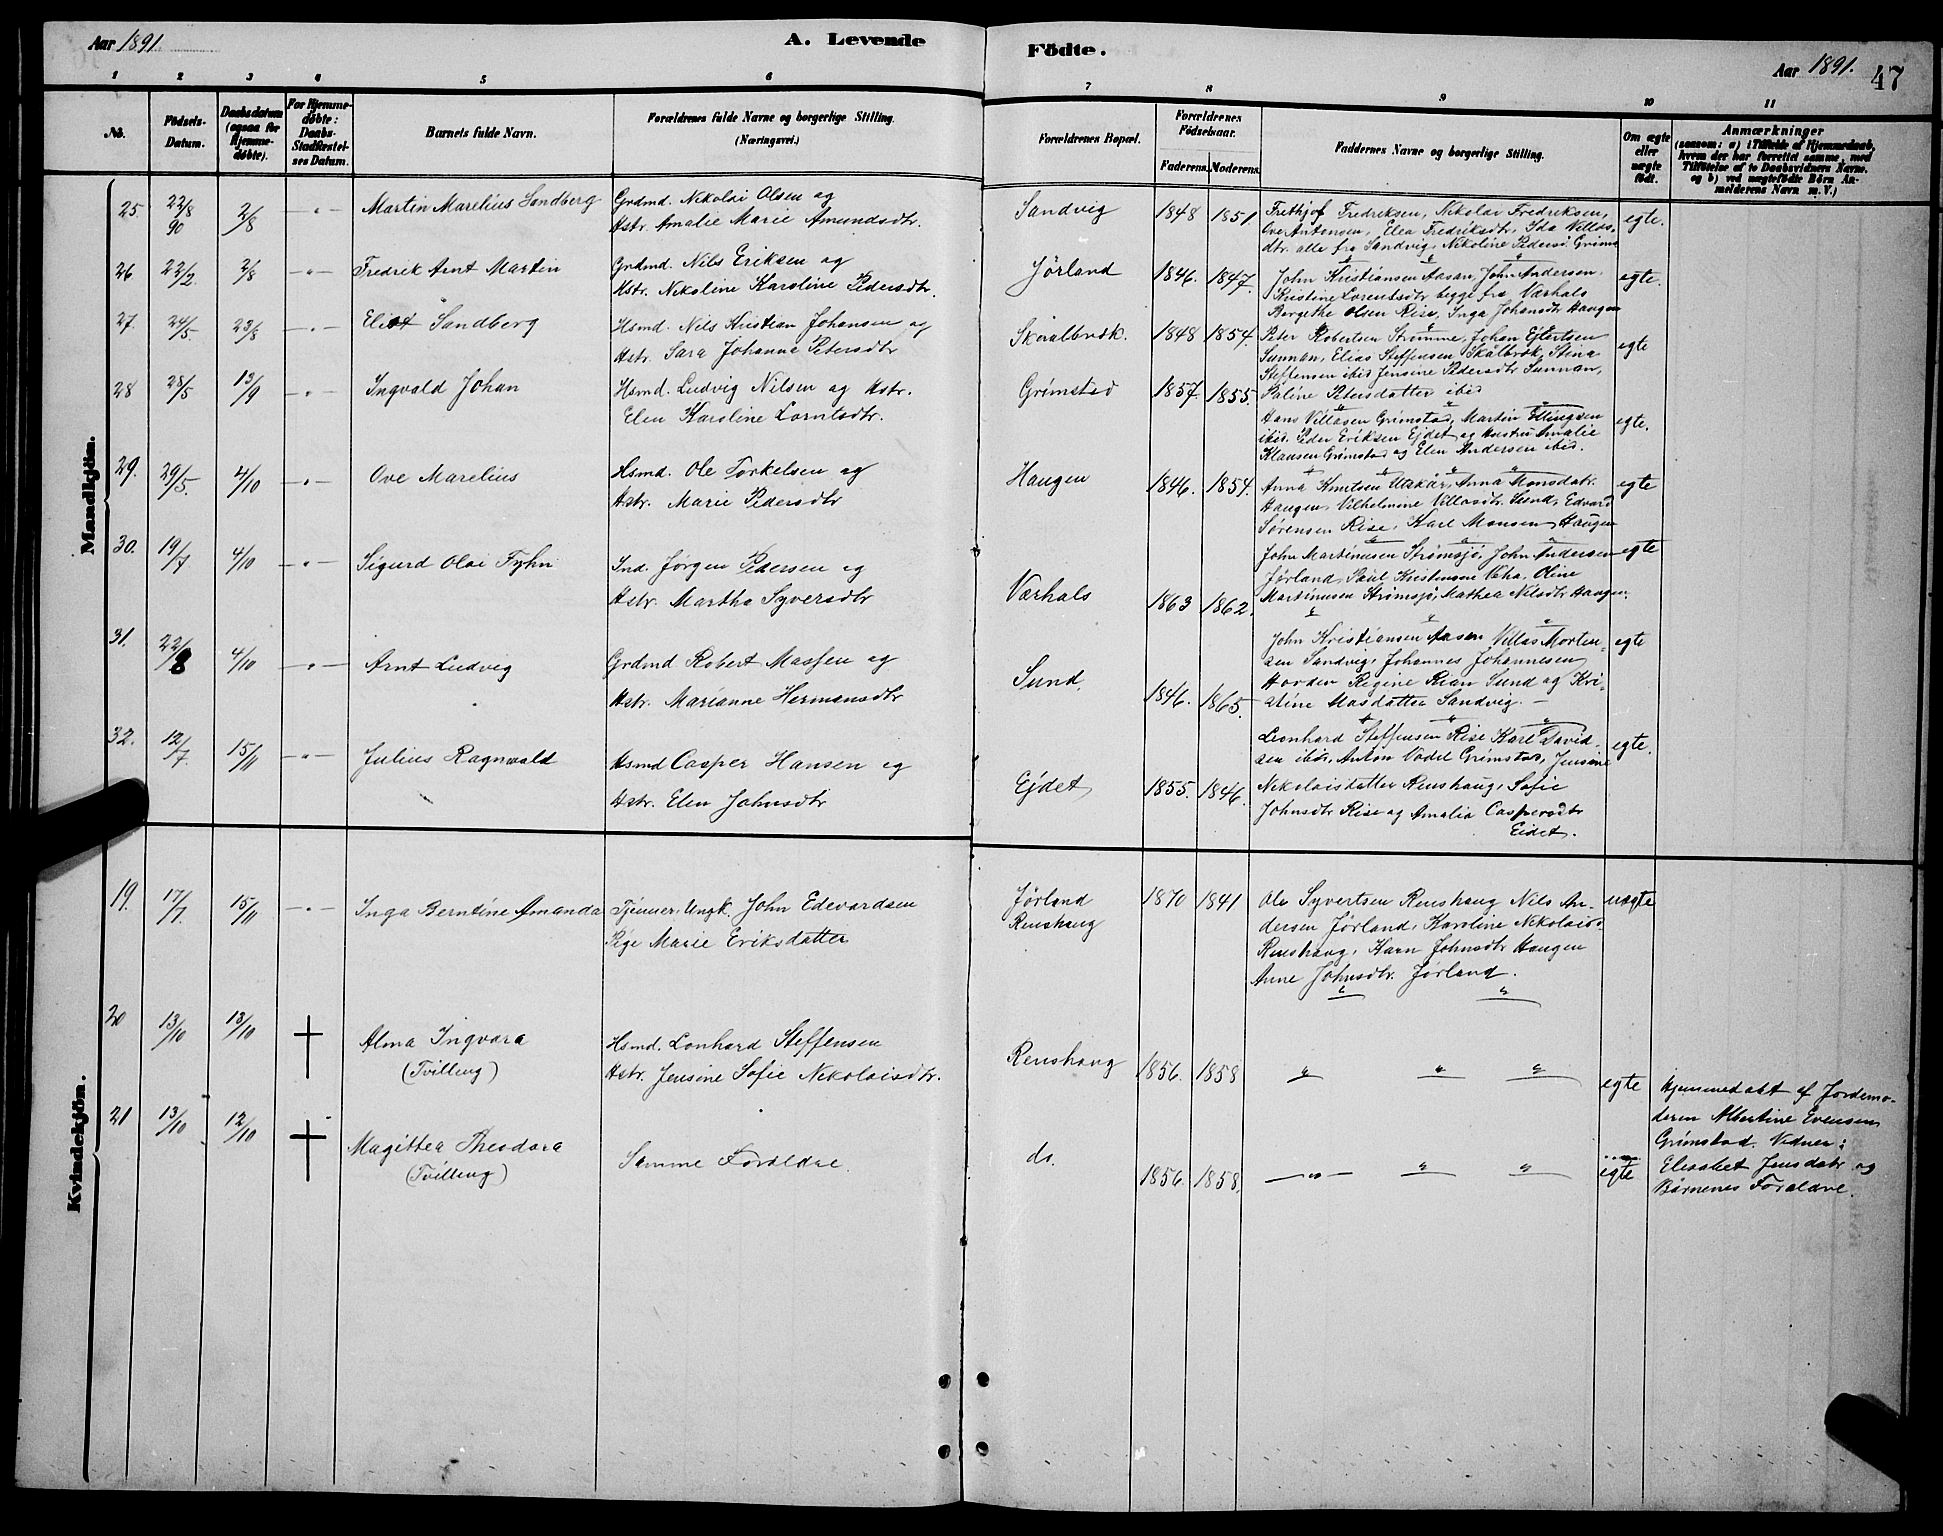 Aar 1891.
A. Levende
Födte.
Aar 1891. 47
1 2 3 4 5 6 7 8 9 10 11
No.
Födsels-
Datum.
Daabsdatum
(ogsaa for
Hjemme-
døbte).
For Hjemme-
døbte:
Daabs-
Stadfæstel-
ses Datum.
Barnets fulde Navn.
Forældrenes fulde Navne og borgerlige Stilling.
(Næringsvei.)
Forældrenes Bopæl.
Forældrenes
Fødselsaar.
Faderens. Moderens.
Faddernes Navne og borgerlige Stilling.
Om ægte
eller
uægte
født.
Anmærkninger
(saasom: a) i Tilfælde af Hjemmedaab,
hvem der har forrettet samme, med
Tilføielse af to Daabsvidners Navne.
og b) ved uægtefødte Börn An-
melderens Navn m. V.)
Mandkjön.
25 22/8 90 2/8 Martin Marelius Sandberg
Grdmd. Nikolai Olsen og
Hstr. Amalie Marie Amundsdtr.
Sandvig 1848 1851.
Frethjof Fredriksen, Nikolai Fredriksen,
Ove Antonsen, Elea Fredriksdtr, Ida Villas-
dtr. alle fra Sandvig, Nikoline Pedersd. Grimst
egte.
26 22/2. 2/8 Fredrik Arnt Martin
Grdmd. Nils Eriksen og
Hstr. Nikoline Karoline Pedersdtr.
Jørland 1846. 1847.
John Kristiansen Aasan, John Andersen,
Kristine Lorentsdtr begge fra Værhals
Bergethe Olsen Rise, Inga Johansdtr Haugen
egte.
27. 24/5. 23/8 Sandberg
Hsmd. Nils Kristian Johansen og
Hstr. Sara Johanna Petersdtr
Skaalbræk. 1848 1854.
Peter Robertsen Strømme, Johan Ejlertsen
Sunnan, Elias Steffensen Skålbræk, Stina
Steffensen ibid Jensine Pedersdtr Sunnan,
Paline Petersdatter ibid
egte
28 28/5 13/9 Ingvald Johan
Hsmd. Ludvig Nilsen og Hstr.
Elen Karoline Lorntsdtr.
Grimstad 1857. 1855.
Hans Villasen Grimstad, Martin Ellingsen
ibid. Peder Eriksen Ejdet og Hustru Amalie
Klausen Grimstad og Elen Andersen ibid.
egte.
29. 29/5. 4/10 Ove Marelius
Hsmd. Ole Torkelsen og
Hstr. Marie Pedersdtr
Haugen 1846. 1854.
Anna Knutsen Utskår, Anna Monsdatr.
Haugen, Vilhelmine Villasdtr. Sund, Edvard
Sørensen Rise, Karl Monsen Haugen
egte
30. 19/7 4/10 Sigurd Olai Fyhn
Ind. Jørgen Pedersen og
Hstr. Martha Syversdtr
Værhals 1863 1862.
John Martinusen Strømsjø, John Andersen
Jørland, Paul Kristensen Veha, Oline
Martinusen Strømsjø, Mathea Nilsdtr Haugen.
egte
31. 22/8 4/10 Arnt Ludvig
Grdmd Robert Massen og
Hstr. Marianne Hermansdtr
Sund. 1846. 1865.
John Kristiansen Aasen Villas Morten-
sen Sandvig, Johannes Johannesen
Horden Regine Rian Sund og Kri-
stine Masdatter Sandvig. –
egte
32. 12/7. 15/11 Julius Ragnvald
Hsmd Casper Hansen og
Hstr. Elen Johnsdtr
Ejdet 1855. 1846.
Leonhard Steffensen Rise Karl David-
sen ibid, Anton Vadel Grimstad, Jensine
Nikolaisdatter Renshaug, Sofie
Johnsdtr Rise og Amalia Caspersdtr
Eidet.
egte.
Kvindekjön.
19. 17/7. 15/11 Inga Berntine Amanda
Tjener, Ungk. John Edevardsen
Pige Marie Eriksdatter
Jørland
Renshaug
1870 1841
Ole Syvertsen Renshaug Nils An-
dersen Jørland, Karoline Nikolaisd.
Renshaug, Karn Johnsdtr Haugen
Anne Johnsdtr. Jørland.
uægte
20 13/10 13/10 Alma Ingvara
(Tvilling)
Hsmd. Lonhard Steffensen
Hstr. Jensine Sofie Nikolaisdtr.
Renshaug 1856. 1858
egte
Hjemmedøbt af Jordemo-
deren Albertine Evensen
Grimstad. Vidner:
Elisabet Jensdatr og
Børnenes Forældre.
21 13/10 12/10 Magittea Theodora
(Tvilling)
Samme Forældre.
do. 1856. 1858.
egte